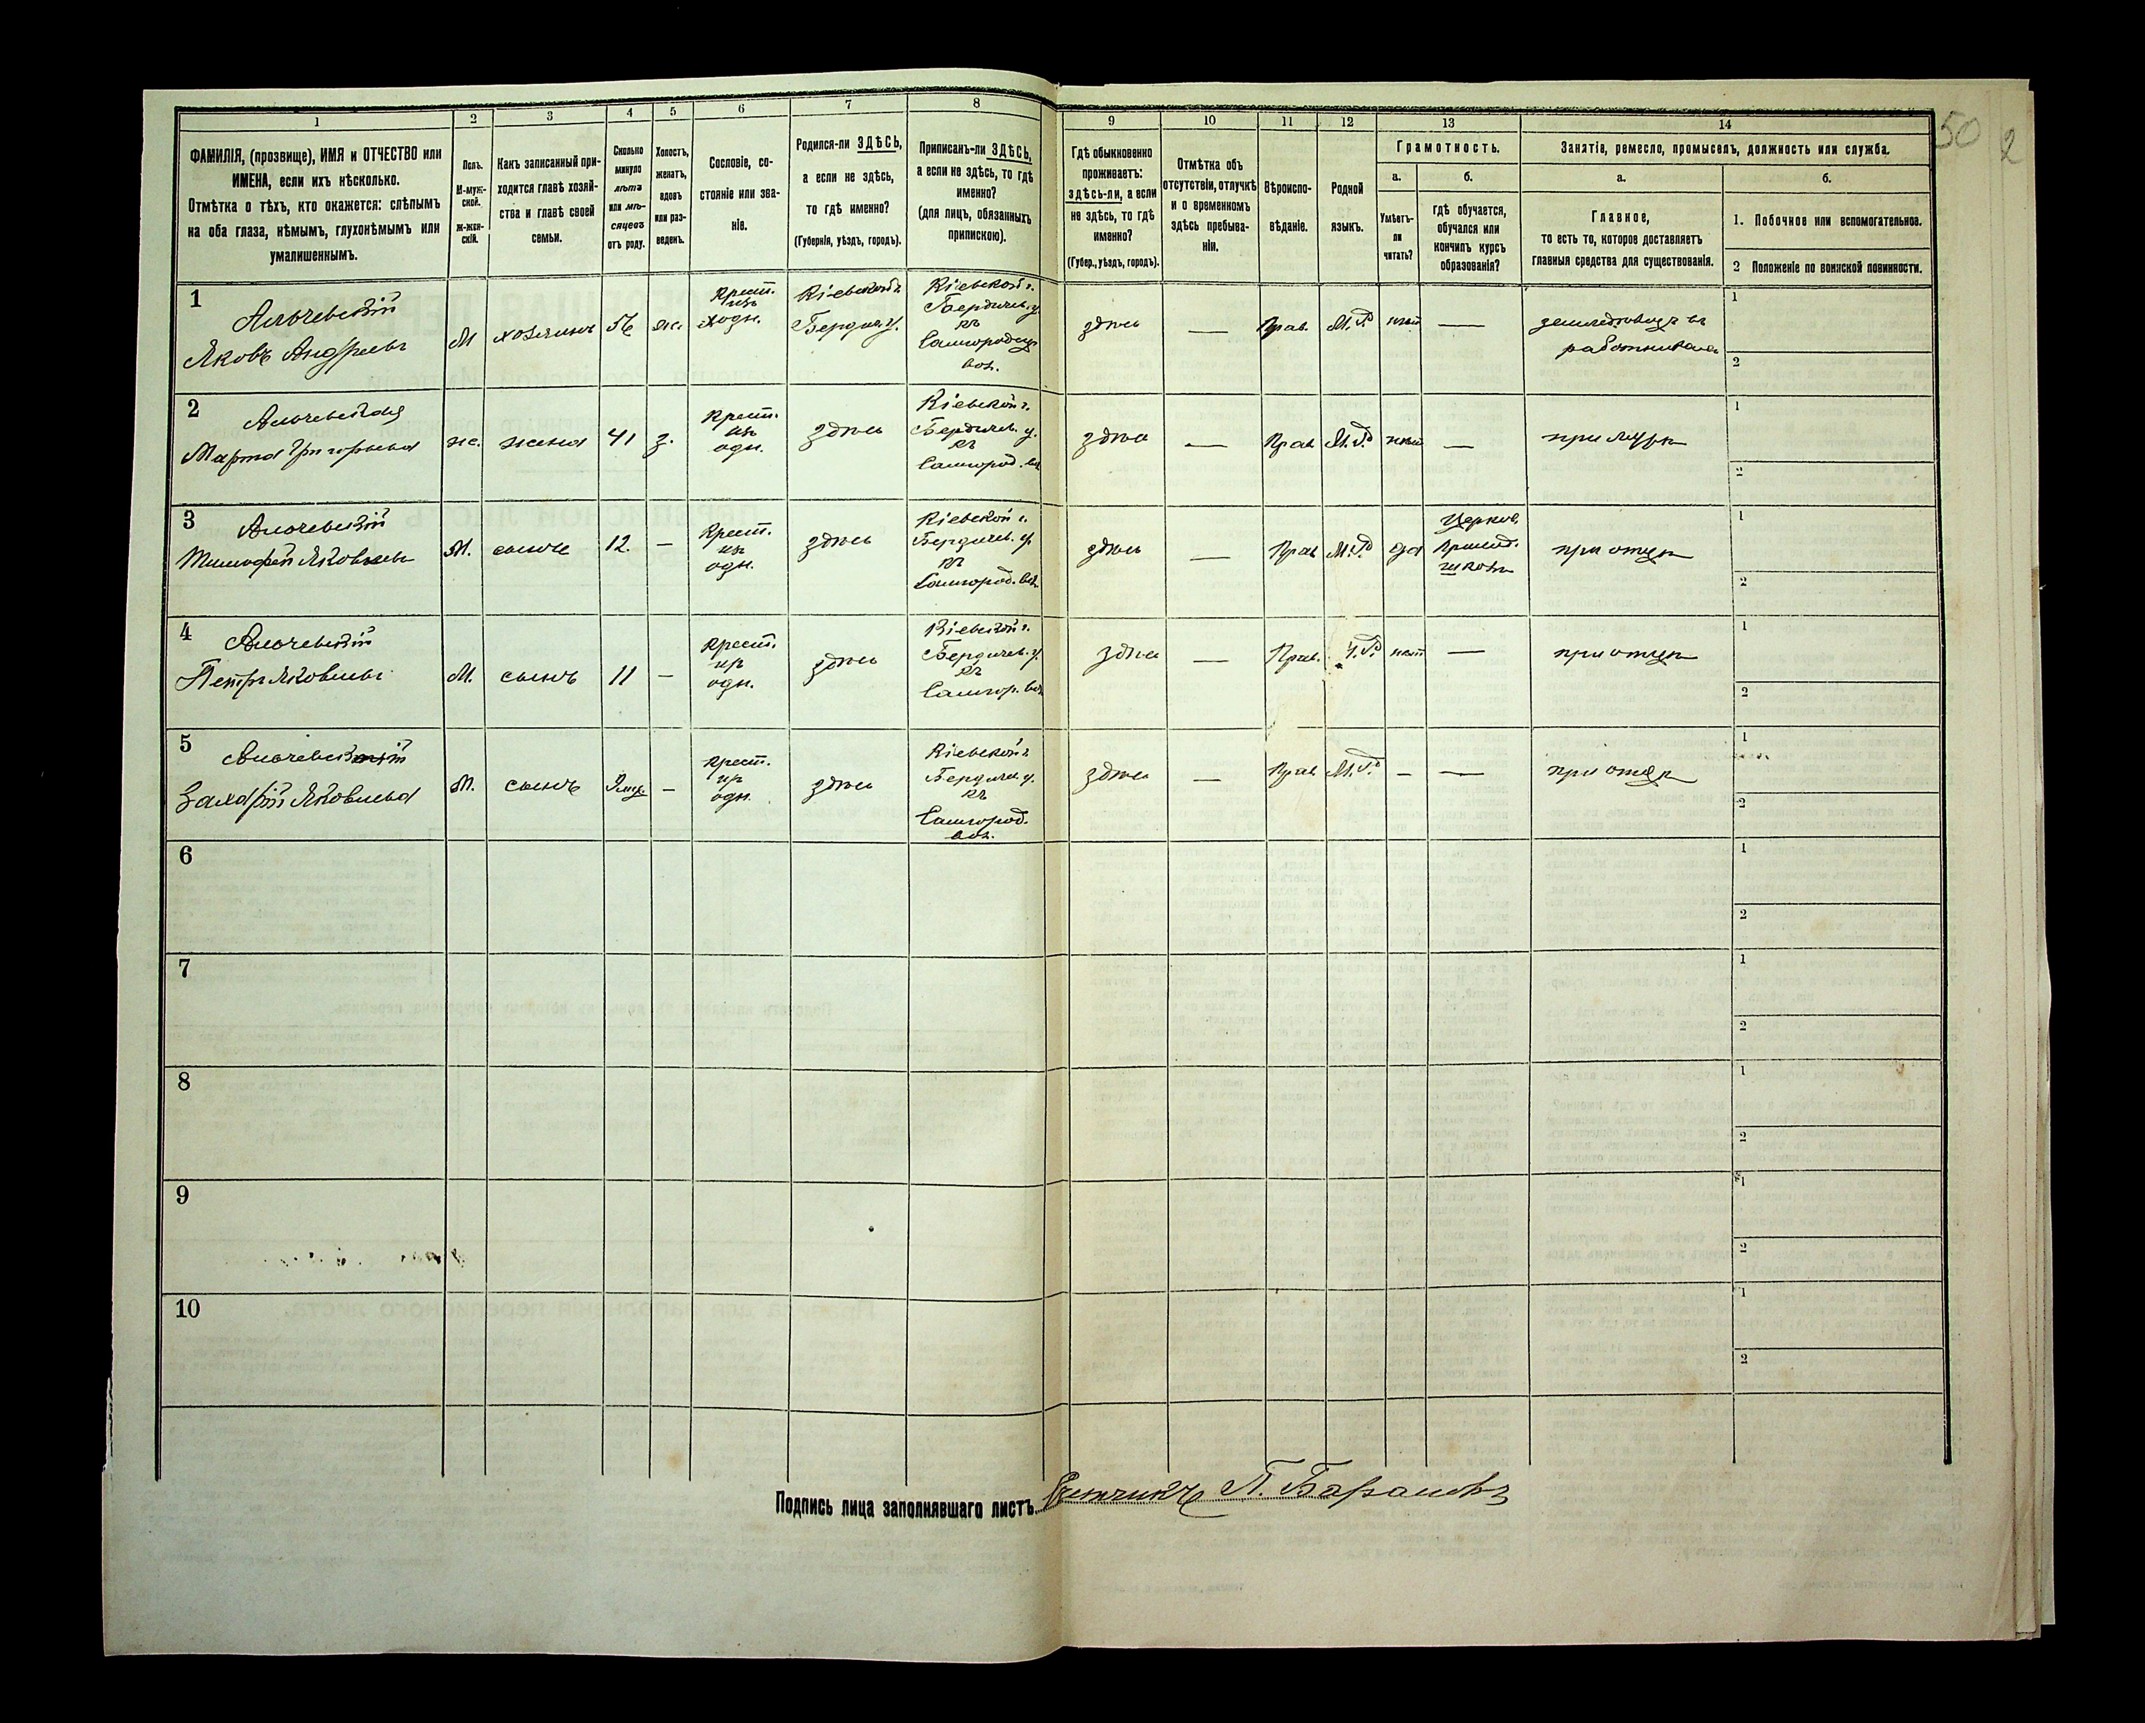 1 2 3 4 5 6 7 8 9 10 11 12 13 14
ФАМИЛІЯ, (прозвище), ИМЯ и ОТЧЕСТВО или
ИМЕНА, если ихъ нѣсколько.
Отмѣтка о тѣхъ, кто окажется: слѣпымъ
на оба глаза, нѣмымъ, глухонѣмымъ или
умалишеннымъ.
Полъ.
М-муж-
ской.
Ж-жен-
скій.
Какъ записанный при-
ходится главѣ хозяй-
ства и главѣ своей
семьи.
Сколько
минуло
лѣтъ
или мѣ-
сяцевъ
отъ роду.
Холостъ,
женатъ,
вдовъ
или раз-
веденъ.
Сословіе, со-
стояніе или зва-
ніе.
Родился-ли ЗДѢСЬ,
а если не здѣсь,
то гдѣ именно?
(Губернія, уѣздъ, городъ).
Приписанъ-ли ЗДѢСЬ,
а если не здѣсь, то гдѣ
именно?
(для лицъ, обязанныхъ
припискою).
Гдѣ обыкновенно
проживаетъ:
здѣсь-ли, а если
не здѣсь, то гдѣ
именно?
(Губер., уѣздъ, городъ).
Отмѣтка объ
отсутствіи, отлучкѣ
и о временномъ
здѣсь пребыва-
ніи.
Вѣроиспо-
вѣданіе.
Родной
языкъ.
Грамотность.
а.
Умѣетъ-
ли
читать?
б.
гдѣ обучается,
обучался или
кончилъ курсъ
образованія?
Занятіе, ремесло, промыселъ, должность или служба.
а.
Главное,
то есть то, которое доставляетъ
главныя средства для существованія.
б.
1. Побочное или вспомогательное.
2 Положеніе по воинской повинности.
50
2
1
Яковъ Андреевъ
М
хозяинъ
ж.
Крест.
изъ
одн.
Кіевской г.
Бердич. у.
Кіевской г.
Бердичев. у.
къ
вол.
здѣсь
—
Прав.
М.Р.
нѣтъ
—
1
2
2
Марта Григорьева
ж.
жена
41
з.
Крест.
из
одн.
здѣсь
Кіевской г.
Бердичев. у.
къ
здѣсь
—
Прав
М.Р.
нѣтъ
—
при мужѣ
1
2
3
Тимофей Яковлевъ
М.
сынъ
12.
—
Крест.
из
одн.
здѣсь
Кіевской г.
Бердичев. у.
къ
здѣсь
—
Прав
М.Р.
да
Церков.
приход.
школѣ
при отцѣ
1
2
4
Петръ Яковлевъ
М.
сынъ
11
—
Крест.
из
одн.
здѣсь
Кіевской г.
Бердичев. у.
къ
здѣсь
—
Прав.
нѣтъ
—
при отцѣ
1
2
5
М.
сынъ
—
Крест.
из
одн.
здѣсь
Кіевской г.
Бердичев. у.
къ
вол.
здѣсь
—
Прав
М.Р.
—
—
при отцѣ
1
2
6
1
2
7
1
2
8
1
2
9
1
2
10
1
2
Подпись лица заполнявшаго листъ. Счетчикъ П. Барановъ